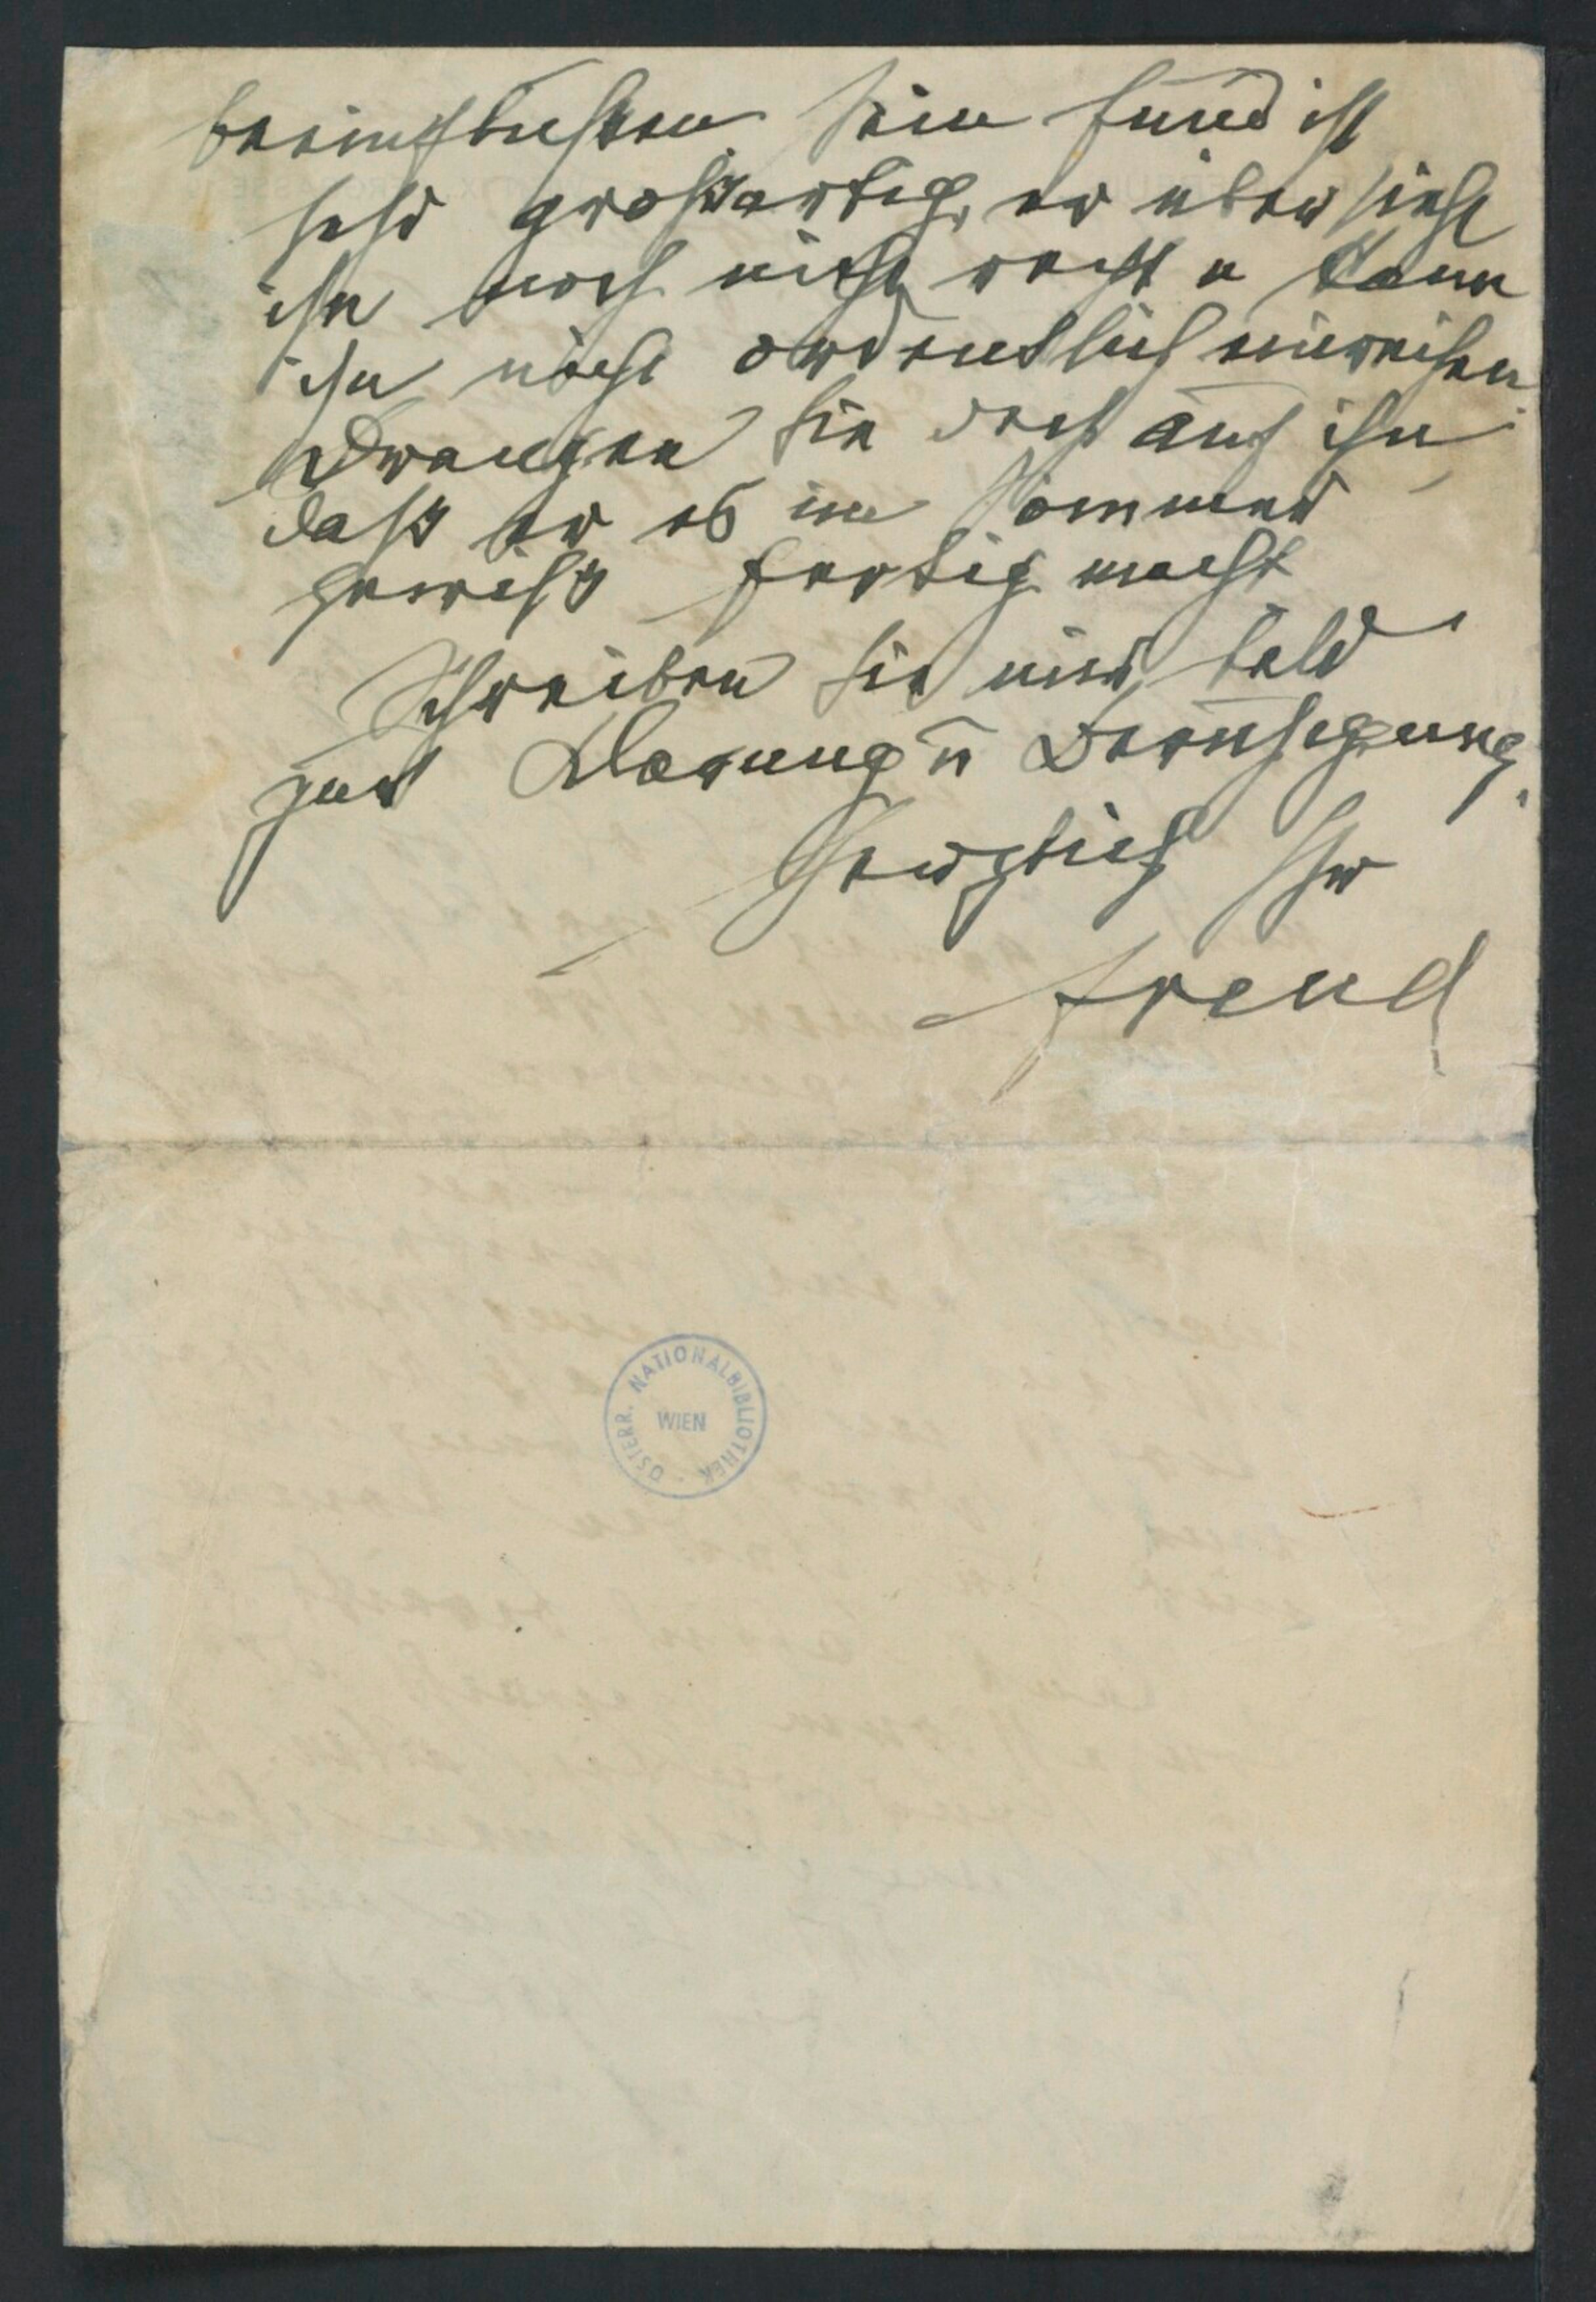 beeinflussen. Sein Fund ist
sehr großartig, er übersieht
ihn noch nicht recht u kann
ihn nicht ordentlich einreihen.
Drängen Sie doch auf ihn,
daß er es im Sommer
gewiß fertig macht
Schreiben Sie mir bald
zur Klärung u Beruhigung.
Herzlich Ihr
Freud
ÖSTERR. NATIONALBIBLIOTHEK
WIEN